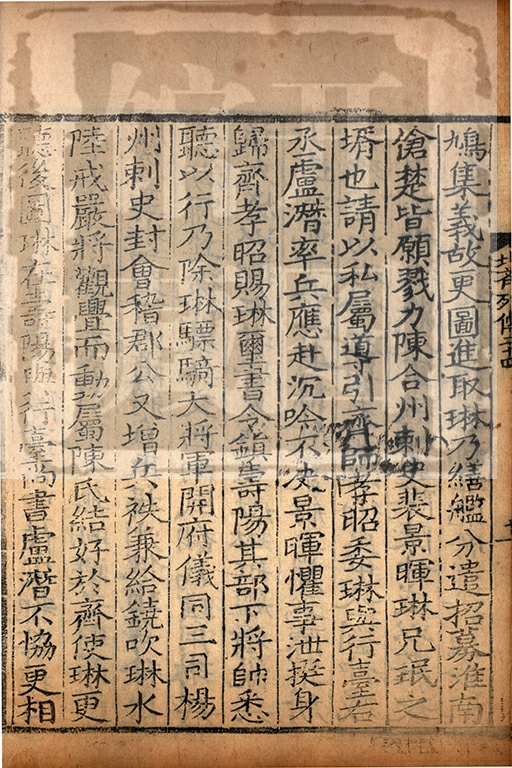 鳩集義故更圖進取琳乃繕艦分遣招募淮南
傖楚皆願戮力陳合州刺史裴景暉琳兄珉之
壻也請以私屬導引齊師孝昭委琳與行臺右
丞盧潛率兵應赴沉吟不決景暉懼事泄挺身
歸齊孝昭賜琳璽書令鎮壽陽其部下將帥悉
聽以行乃除琳驃騎大將軍開府儀同三司楊
州刺史封會稽郡公又增兵袟兼給鐃吹琳水
陸戒嚴將觀舋而動屬陳氏結好於齊使琳更
聽後圖琳在壽陽與行臺尚書盧潛不協更相
北齊列傳二十四